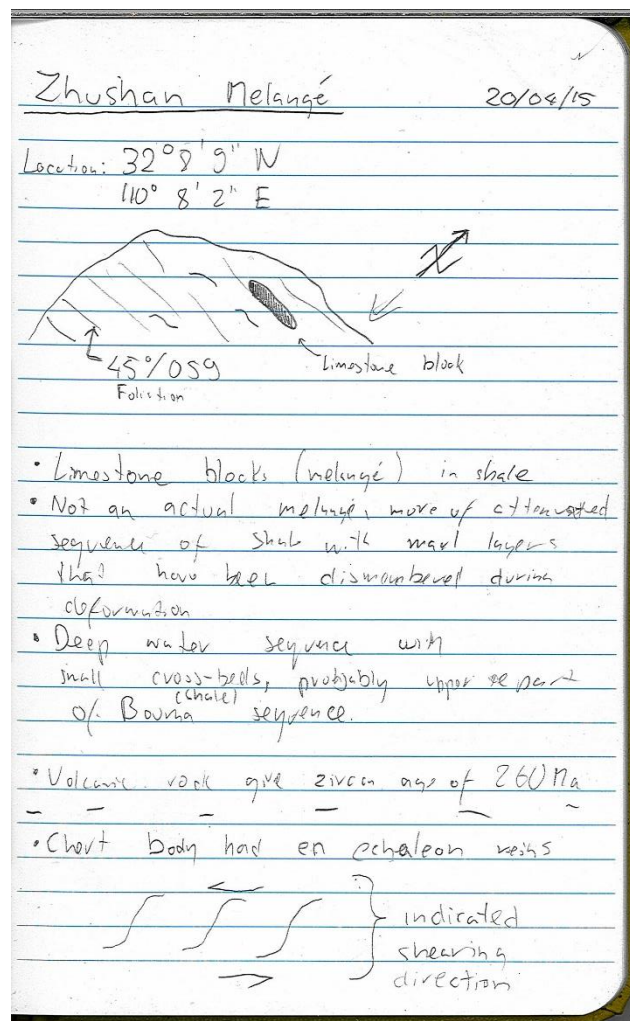 Zhushan Melangé 20/04/15
Location: 32° 8' 9" N
110° 8' 2" E
N
45°/059
Foliation
Limestone block
• Limestone blocks (melangé) in shale
• Not an actual melangé, more of attenuated
sequence of shale with marl layers
that have been dismembered during
deformation
• Deep water sequence with
small cross-beds, probably upper part
(shale)
of Bouma sequence.
• Volcanic rock give zircon age of 260 Ma
• Chert body had en echaleon veins
indicated
shearing
direction